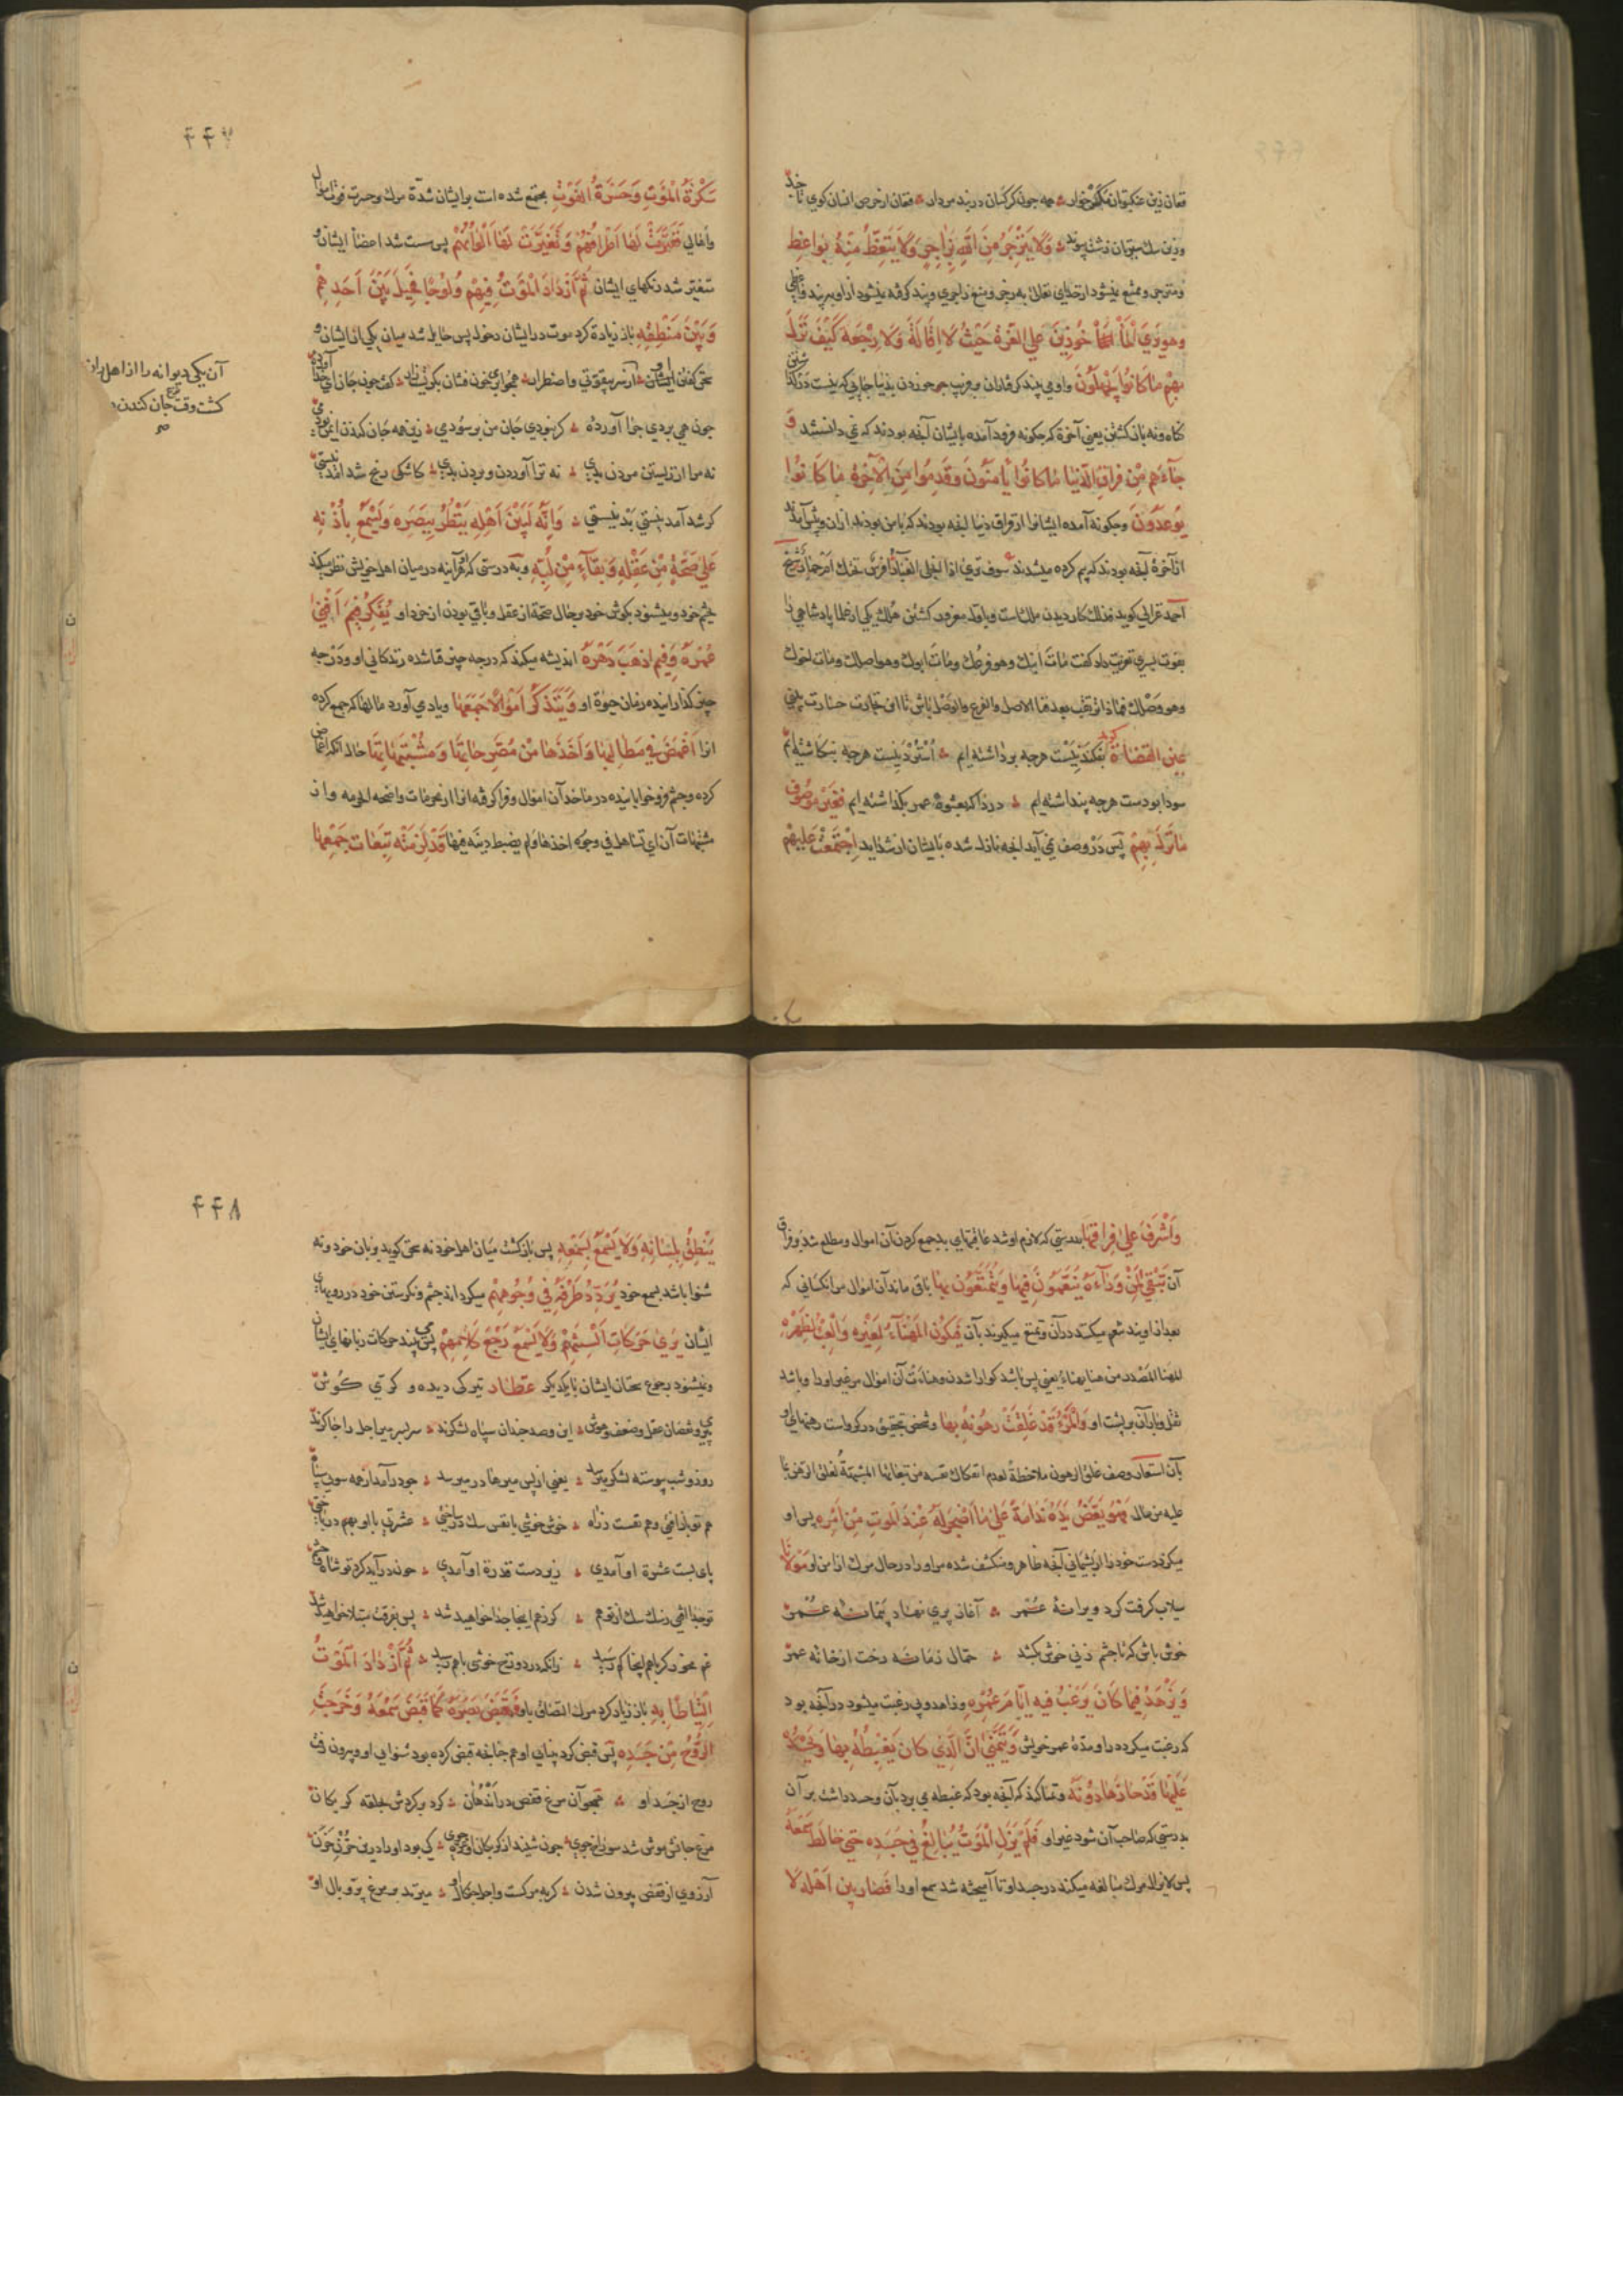 فغان زین عنکبوتان مگس خوار همه چون کرکسان دربند مردار فغان از حرص انسان کوی
وزین سک سیرتان زشت پیوند وَلَا یَنْزَجِرُ مِنَ اللهِ بِزَاجِرٍ وَلَا یَتَّعِظُ مِنْهُ بِوَاعِظٍ
ومنزجر وممتنع نمیشود از خدای تعالی به زجر ومنع زاجری وپند کرفته نمیشود از او به پند واعظی
وَهُوَ یَرَی الْمَأْخُوذِینَ عَلَی الْغِرَّةِ حَیْثُ لَا اِقَالَةَ وَلَا رَجْعَةَ کَیْفَ نَزَلَ
بِهِمْ مَا کَانُوا یَجْهَلُونَ واو می بیند
کناه ونه باز کشتن یعنی آخرة که چکونه فرود آمده بایشان آنچه بودند که نمی دانستند وَ
جَاءَهُمْ مِنْ فِرَاقِ الدُّنْیَا مَا کَانُوا یَأْمَنُونَ وَقَدِمُوا مِنَ الْآخِرَةِ مَا کَانُوا
یُوعَدُونَ وچکونه آمده ایشانرا از فراق دنیا آنچه بودند که ایمن بودند از آن
از آخرة آنچه بودند که بیم کرده میشدند سوف تری اذا انجلی الغبار أفرس تحتک ام حمار شیخ
احمد غزالی کوید
بفوت پسری تعزیت داد کفت مات ابنک وهو فرعک ومات ابوک وهو اصلک ومات اخوک
وهو وصلک فماذا تنتظر بعد فناء الاصل والفرع والوصل
عین القضاة بفکندنیست هرچه برداشته ایم استردنیست هرچه بنکاشته ایم
سودا بودست هرچه پنداشته ایم دردا که بعشوه عمر بکذاشته ایم فَغَیْرُ مَوْصُوفٍ
مَا نَزَلَ بِهِمْ پس در وصف نمی آید آنچه نازل شده بایشان از شداید اِجْتَمَعَتْ عَلَیْهِمْ
۴۴۷
سَکْرَةُ الْمَوْتِ وَحَسْرَةُ الْفَوْتِ مجتمع شده است بر ایشان شدّة مرک وحسرت فوت
فَفَتَرَتْ لَهَا اَطْرَافُهُمْ وَتَغَیَّرَتْ لَهَا اَلْوَانُهُمْ پس سست شد اعضاء ایشان و
متغیر شد رنکهای ایشان ثُمَّ ازْدَادَ الْمَوْتُ فِیهِمْ وُلُوجًا فَحِیلَ بَیْنَ اَحَدِهِمْ
وَبَیْنَ مَنْطِقِهِ باز زیاده کرد موت در ایشان دخول پس حایل شد میان یکی از ایشان و
چون همی بردی چرا آورده کر نبودی جان من بر سودی زین همه جان کندن
نه مرا از زیستن مردن بدی نه ترا آوردن وبردن بدی کاشکی رنج شد آمد نیستی
کر شد آمد نیستی بد نیستی وَاِنَّهُ لَبَیْنَ اَهْلِهِ یَنْظُرُ بِبَصَرِهِ وَیَسْمَعُ بِأُذُنِهِ
عَلَی صِحَّةٍ مِنْ عَقْلِهِ وَبَقَاءٍ مِنْ لُبِّهِ وبه درستی که او هر آینه در میان اهل خویش نظر میکند
بچشم خود ومیشنود بکوش خود بر حال صحة از عقل وباقی بودن از خرد او یُفَکِّرُ فِیمَ اَفْنَی
عُمْرَهُ وَفِیمَ اَذْهَبَ دَهْرَهُ اندیشه میکند که در چه چیز فنا شده زندکانی او ودر چه
چیز کذارانیده زمان حیوة او وَیَتَذَکَّرُ اَمْوَالًا جَمَعَهَا ویاد می آورد مالها که جمع کرده
آنرا اَغْمَضَ فِی مَطَالِبِهَا وَاَخَذَهَا مِنْ مُصَرَّحَاتِهَا وَمُشْتَبِهَاتِهَا حال آنکه اغماض
کرده وچشم فرو خوابانیده در مآخذ آن اموال وفرا کرفته آنرا از محرمات واضحه
مشتبهات آن ای تساهل فی وجوه اخذها ولم یضبط دینه فیها قَدْ لَزِمَتْهُ تَبِعَاتُ جَمْعِهَا
آن یکی دیوانه را از اهل راز
کشت وقت نزع جان کندن
وَاَشْرَفَ عَلَی فِرَاقِهَا بدرستی که لازم او شد عاقبتهای بد جمع کردن آن اموال ومطلع شد بر فراق
آن تَبْقَی لِمَنْ وَرَاءَهُ یَنْعَمُونَ فِیهَا وَیَتَمَتَّعُونَ بِهَا باقی ماند آن اموال مر آنکسانی که
بعد از اویند تنعم میکنند در آن وتمتع میکیرند بآن فَیَکُونُ الْمَهْنَأُ لِغَیْرِهِ وَالْعِبْءُ عَلَی ظَهْرِهِ
المهنأ المصدر من هنأ یهنأ یعنی پس باشد کوارا شدن وهناءت آن اموال مر غیر او را وباشد
ثقل وبار آن بر پشت او وَالْمَرْءُ قَدْ غَلِقَتْ رُهُونُهُ بِهَا وشخص بتحقیق در کرو است رهنهای او
بآن استعار وصف غلق الرهون ملاحظة لعدم انفکاک نفسه من تبعاتها
علیه من مال فَهُوَ یَعَضُّ یَدَهُ نَدَامَةً عَلَی مَا اَصْحَرَ لَهُ عِنْدَ الْمَوْتِ مِنْ اَمْرِهِ پس او
میکزد دست خود را از پشیمانی آنچه ظاهر ومنکشف شده مر او را در حال مرک از امر او
سیلاب کرفت کرد ویرانهٔ عمر آغاز پری نهاد پیمانهٔ عمر
خوش باش که تا چشم زنی خوش بکشد حمال زمانه رخت از خانه عمر
وَیَزْهَدُ فِیمَا کَانَ یَرْغَبُ فِیهِ اَیَّامَ عُمُرِهِ وزاهد وبی رغبت میشود در آنچه بود
که رغبت میکرد در او مدّة عمر خویش وَیَتَمَنَّی اَنَّ الَّذِی کَانَ یَغْبِطُهُ بِهَا وَیَحْسُدُهُ
عَلَیْهَا قَدْ حَازَهَا دُونَهُ وتمنا کند که آنچه بود که غبطه می برد بآن وحسد داشت بر آن
بدرستی که صاحب آن شود غیر او فَلَمْ یَزَلِ الْمَوْتُ یُبَالِغُ فِی جَسَدِهِ حَتَّی خَالَطَ سَمْعَهُ
پس لایزال مرک مبالغه میکند در جسد او تا آمیخته شد سمع او را فَصَارَ بَیْنَ اَهْلِهِ لَا
۴۴۸
یَنْطِقُ بِلِسَانِهِ وَلَا یَسْمَعُ بِسَمْعِهِ پس باز کشت میان اهل خود نه سخن کوید بزبان خود ونه
شنوا باشد بسمع خود یُرَدِّدُ طَرْفَهُ فِی وُجُوهِهِمْ میکرداند چشم ونکرستن خود در رویهای
ایشان یَرَی حَرَکَاتِ اَلْسِنَتِهِمْ وَلَا یَسْمَعُ رَجْعَ کَلَامِهِمْ می بیند حرکات زبانهای ایشان
ونمیشنود رجوع سخنان ایشان با یکدیکر عطار تیرکی دیده و کری کوش
پیری ونقصان عقل وضعف وهوش این وصد چندان سپاه لشکرند سر بسر میر اجل را چاکرند
روز وشب پیوسته لشکر میرسد یعنی از پس میر ما در میرسد چون درآمد از همه سوی سپاه
هم تو باز افتی وهم نفست ز راه خوش خوشی با نفس سک در ساختی عشرتی با او بهم
پای بست عشرة او آمدی زیر دست قدرة او آمدی چون درآید کرد تو شاه وحشم
تو جدا افتی ز سک سک از تو هم کر ز هم اینجا جدا خواهید شد پس بفرقت مبتلا خواهید شد
غم مخور کر با هم اینجا کم رسید زانکه در دوزخ خوشی با هم رسید ثُمَّ ازْدَادَ الْمَوْتُ
اِلْتِیَاطًا بِهِ باز زیاد کرد مرک التصاق باو فَقُبِضَ بَصَرُهُ کَمَا قُبِضَ سَمْعُهُ وَخَرَجَتِ
الرُّوحُ مِنْ جَسَدِهِ پس قبض کرد بینایی او هم چنانچه قبض کرده بود شنوایی او وبیرون رفت
روح از جسد او همچو آن مرغ قفص در اندهان کرد بر کردش حلقه کربکان
مرغ جانش موش شد سوراخ جوی چون شنید از کربکان او عرجوا کی بود او را درین
آرزوی از قفص بیرون شدن کربه مرکست میزند بر مرغ پر وبال او